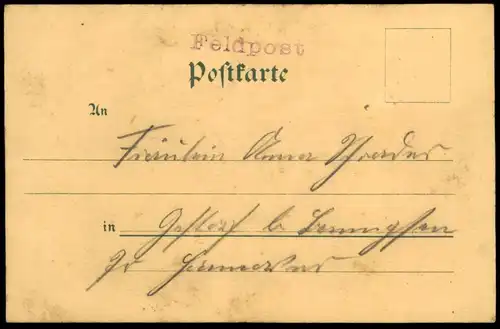 Feldpost
Postkarte
An
Fräulein Anna Schrader
in Gestorf b Bennigsen
Pr Hannover